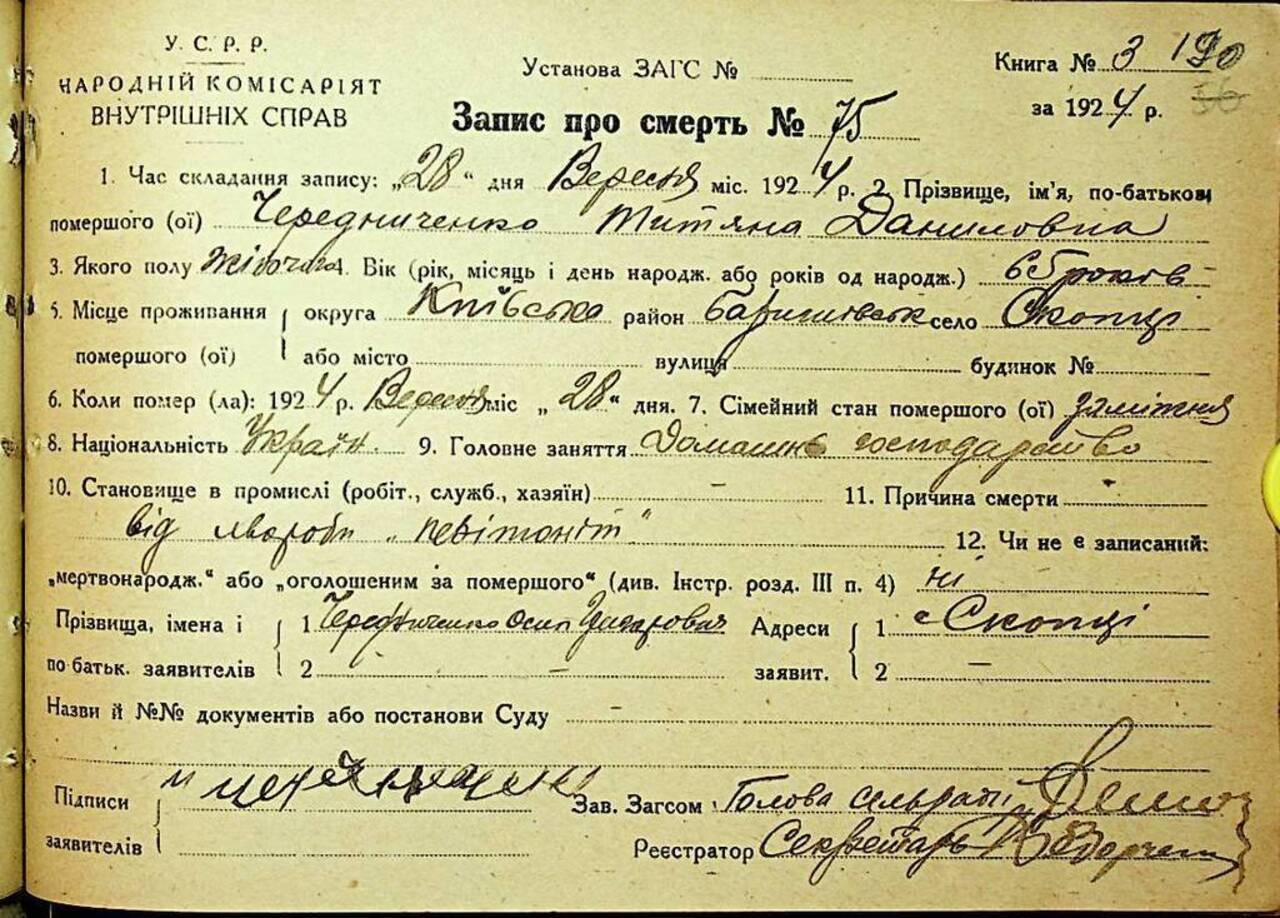 У. С. Р. Р.
НАРОДНІЙ КОМІСАРІЯТ
ВНУТРІШНІХ СПРАВ
Установа ЗАГС №
Книга № 3 190
за 1924 р. 56
Запис про смерть № 75
1. Час складання запису: „28“ дня Вересня міс. 1924 р. 2. Прізвище, ім'я, по-батькові
помершого (ої) Чередниченко Титяна Даниловна
3. Якого полу жіночого 4. Вік (рік, місяць і день народж. або років од народж.) 65 років
5. Місце проживання округа Київська район Баришівськ село Скопці
помершого (ої) або місто вулиця будинок №
6. Коли помер (ла): 1924 р. Вересня міс „28“ дня. 7. Сімейний стан помершого (ої) заміжня
8. Національність Україн. 9. Головне заняття Домашнє господарство
10. Становище в промислі (робіт., служб., хазяїн) - 11. Причина смерти
від хвороби 12. Чи не є записаний:
„мертвонародж.“ або „оголошеним за помершого“ (див. Інстр. розд. III п. 4) ні
Прізвища, імена і 1 Чередниченко Осип Адреси 1 с Скопці
по батьк. заявителів 2 - заявит. 2 -
Назви й №№ документів або постанови Суду -
Підписи Зав. Загсом Голова сільради
заявителів Реєстратор Секретарь